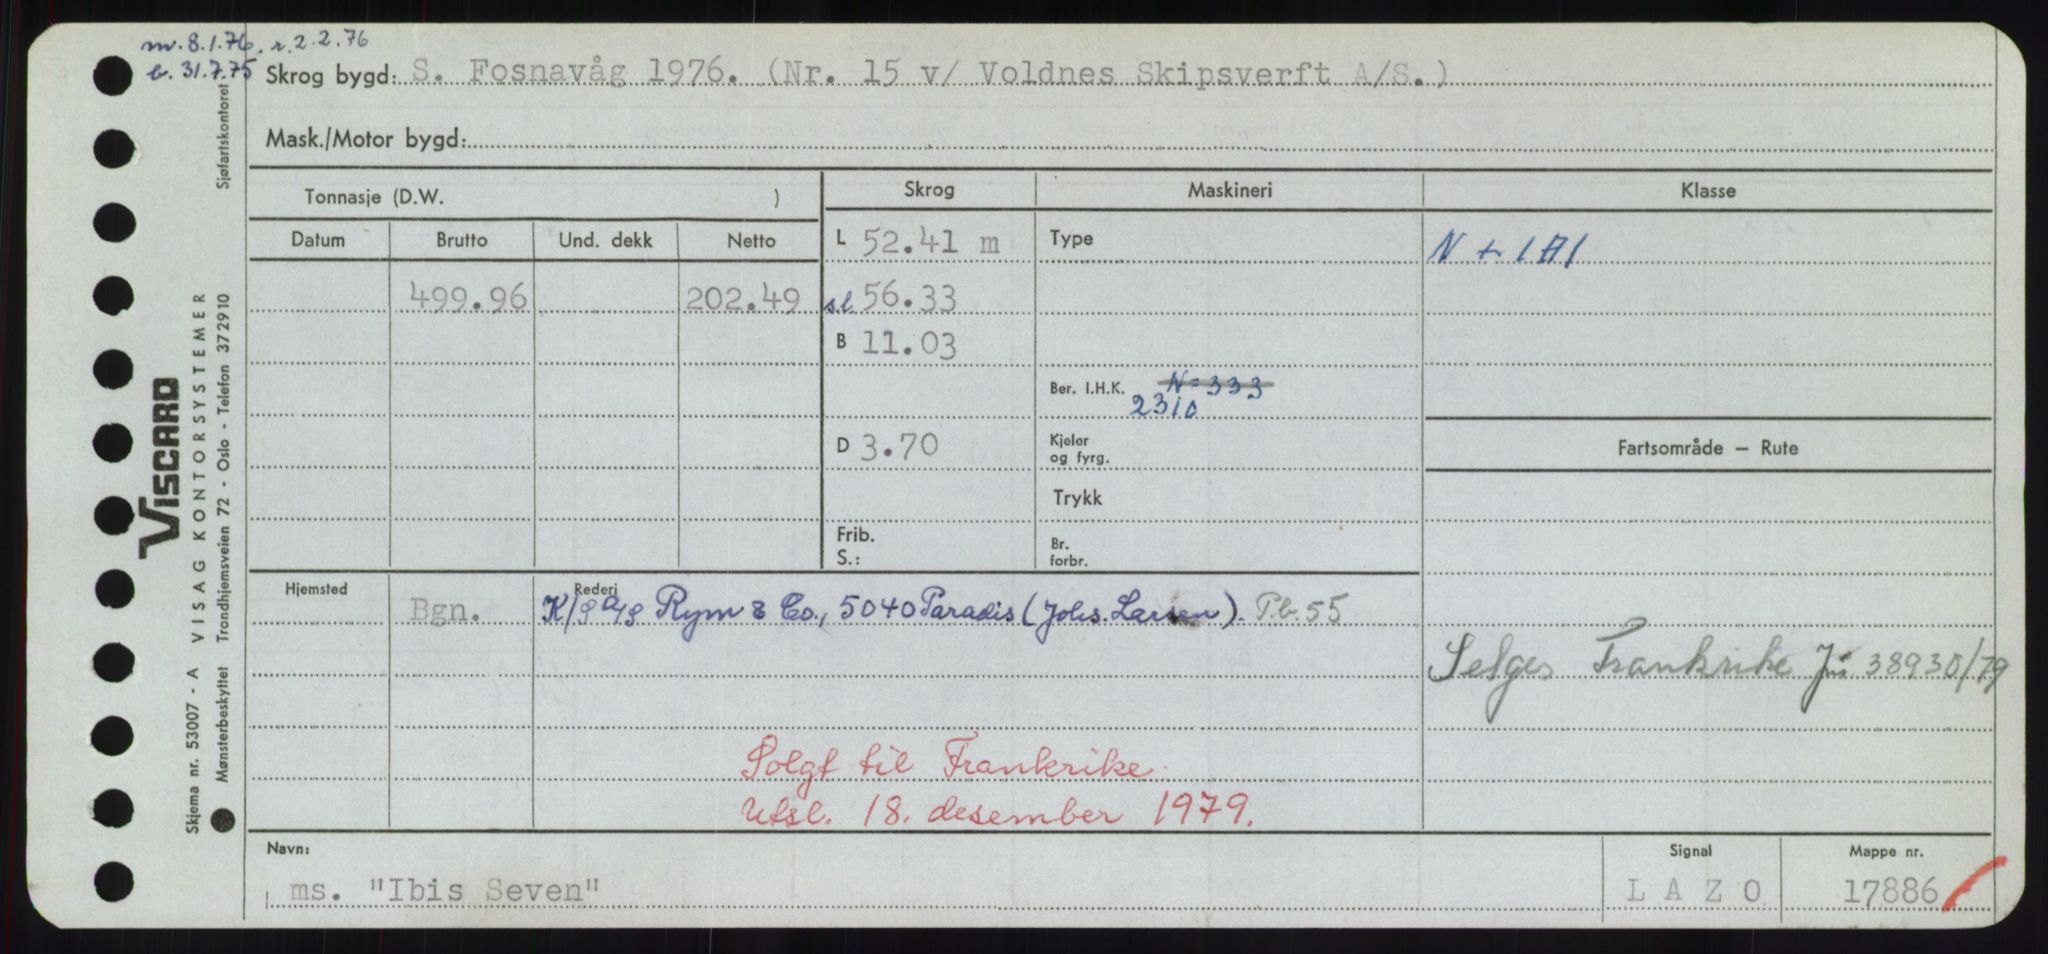 m. 8.1.76. r. 2.2.76
b. 31.7.75
Skrog bygd: S. Fosnavåg 1976. (Nr. 15 v/ Voldnes Skipsverft A/S.)
Mask./Motor bygd:
Tonnasje (D.W. )
Skrog
Maskineri
Klasse
Datum Brutto Und. dekk Netto
L 52.41 m
Type
N + 1A1
499.96 202.49
sl 56.33
B 11.03
Ber. I.H.K. N=333
2310
D 3.70
Kjeler
og fyrg.
Fartsområde — Rute
Trykk
Frib.
S.:
Br.
forbr.
Hjemsted
Rederi
Bgn. K/S A/S Rym & Co., 5040 Paradis (Johs. Larsen). P.b. 55
Selges Frankrike Jnr. 38930/79
Solgt til Frankrike.
Utsl. 18. desember 1979.
Navn:
Signal
Mappe nr.
ms. "Ibis Seven"
L A Z O
17886
Sjøfartskontoret
VISCARD
VISAG KONTORSYSTEMER
Trondhjemsveien 72 - Oslo - Telefon 372910
Skjema nr. 53007 - A
Mønsterbeskyttet